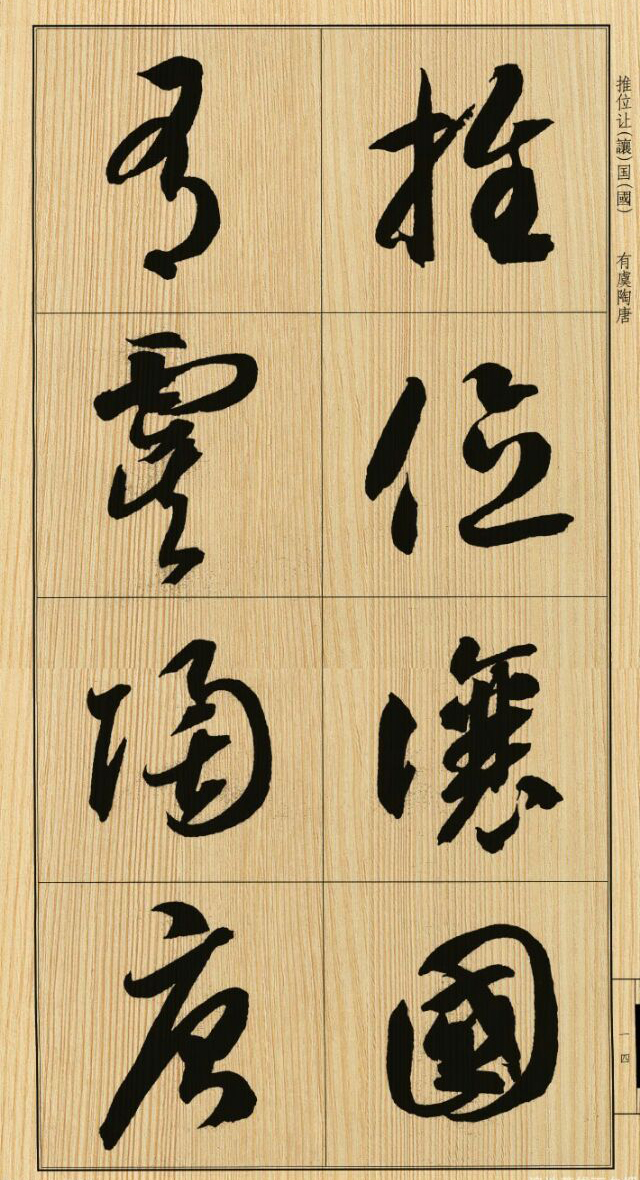 推位讓國
有虞陶唐
推位让(讓)国(國) 有虞陶唐
一四